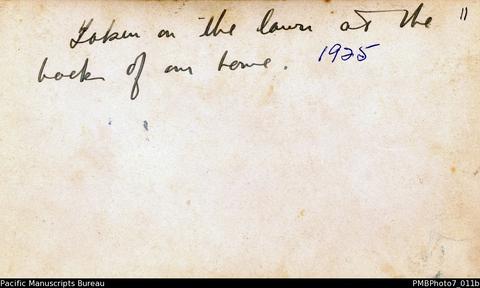 Taken on the lawn at the 11
back of our home. 1925
Pacific Manuscripts Bureau PMBPhoto7_011b